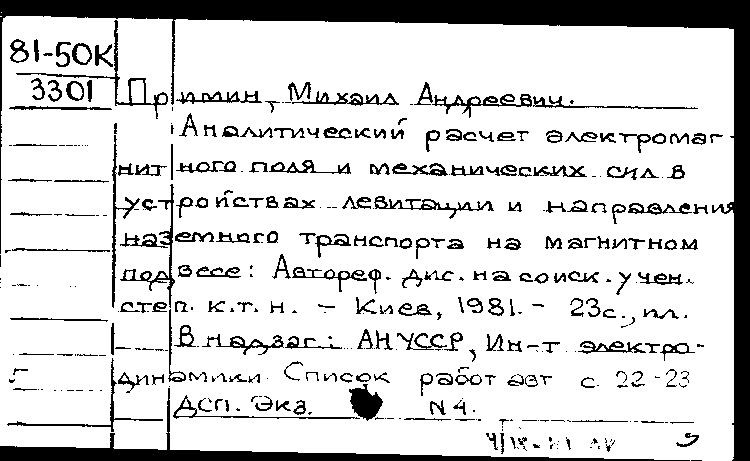 81-50К
3301
Примин, Михаил Андреевич.
Аналитический расчет электромаг-
нитного поля и механических сил в
устройствах левитации и направления
наземного транспорта на магнитном
подвесе: Автореф. дис. на соиск. учен.
степ. к.т.н. - Киев, 1981. - 23с., ил.
В надзаг.: АН УССР, Ин-т электро-
динамики Список работ авт с. 22-23
ДСП. Экз. N 4.